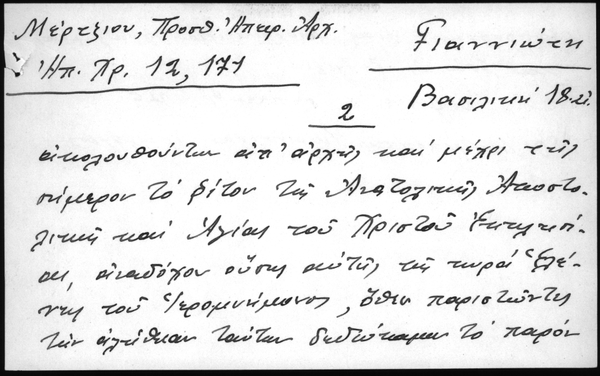 Μέρτζιου, Προσθ. Ἠπειρ. Ἀρχ.
Ἠπ. Χρ. 12, 171
Γιαννιώτη
Βασιλική 18 αἰ.
2
ἀκολουθούντων ἀπ' ἀρχῆς καί μέχρι τῆς
σήμερον τό ρίτον τῆς Ἀνατολικῆς Ἀποστο-
λικῆς καί Ἁγίας τοῦ Χριστοῦ Ἐκκλησί-
ας, ἀναδόχου οὔσης αὐτῆς τῆς κυρά Ἑλέ-
νης τοῦ Ἱερομνήμονος, ὅθεν παριστῶντες
τήν ἀλήθειαν ταύτην δεδώκαμεν τό παρόν